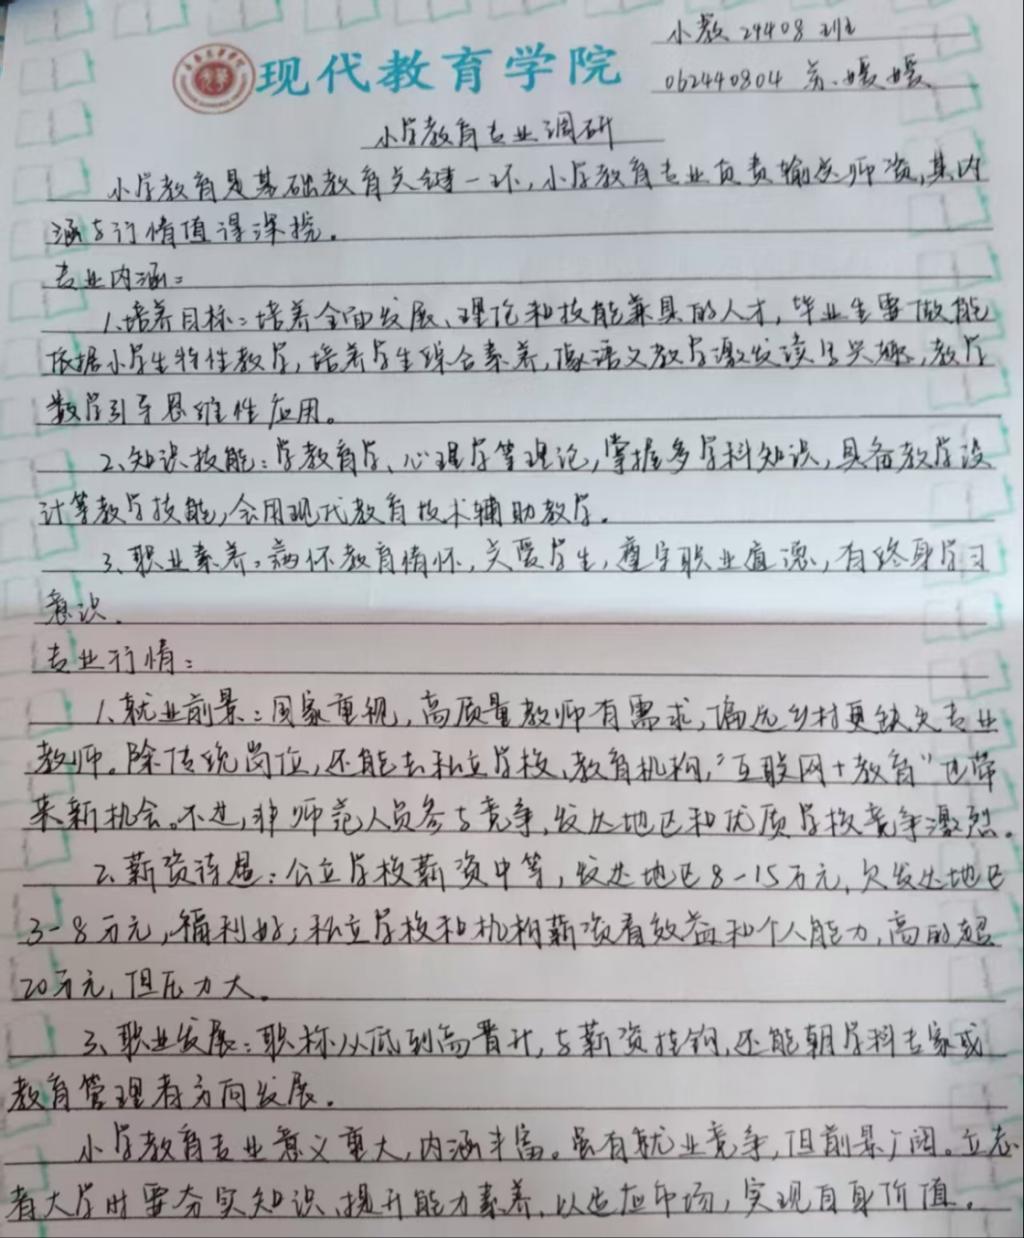 小教29408班
现代教育学院
062440804 苏媛媛
小学教育专业调研
小学教育是基础教育关键一环,小学教育专业负责输送师资,其内
涵与行情值得深挖。
专业内涵:
1.培养目标:培养全面发展、理论和技能兼具的人才,毕业生要做能
依据小学生特性教学,培养学生综合素养,像语文教学激发读写兴趣,教学
数学引导思维性应用。
2.知识技能:学教育学、心理学等理论,掌握多学科知识,具备教学设
计等教学技能,会用现代教育技术辅助教学。
3、职业素养:满怀教育情怀,关爱学生,遵守职业道德,有终身学习
意识。
专业行情:
1.就业前景:国家重视,高质量教师有需求,偏远乡村更缺失专业
教师。除传统岗位,还能去私立学校、教育机构,“互联网+教育”也带
来新机会。不过,非师范人员参与竞争,发达地区和优质学校竞争激烈。
2.薪资待遇:公立学校薪资中等,发达地区8-15万元,欠发达地区
3-8万元,福利好;私立学校和机构薪资看效益和个人能力,高的超
20万元,但压力大。
3、职业发展:职称从低到高晋升,与薪资挂钩,还能朝学科专家或
教育管理者方向发展。
小学教育专业意义重大,内涵丰富。虽有就业竞争,但前景广阔。立志
者大学时要夯实知识、提升能力素养,以适应市场,实现自身价值。